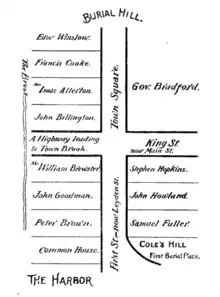 BURIAL HILL.
Edw Winslow.
Francis Cooke.
Mr Isaac Allerton.
John Billington.
The Brook
Town Square.
Gov. Bradford.
A Highway leading
to Town Brook.
King St.
now Main St.
Mr William Brewster.
John Goodman.
Peter Brown.
Common House.
First St.-now Leyden St.
Stephen Hopkins.
John Howland.
Samuel Fuller.
COLE'S HILL
First Burial Place.
THE HARBOR